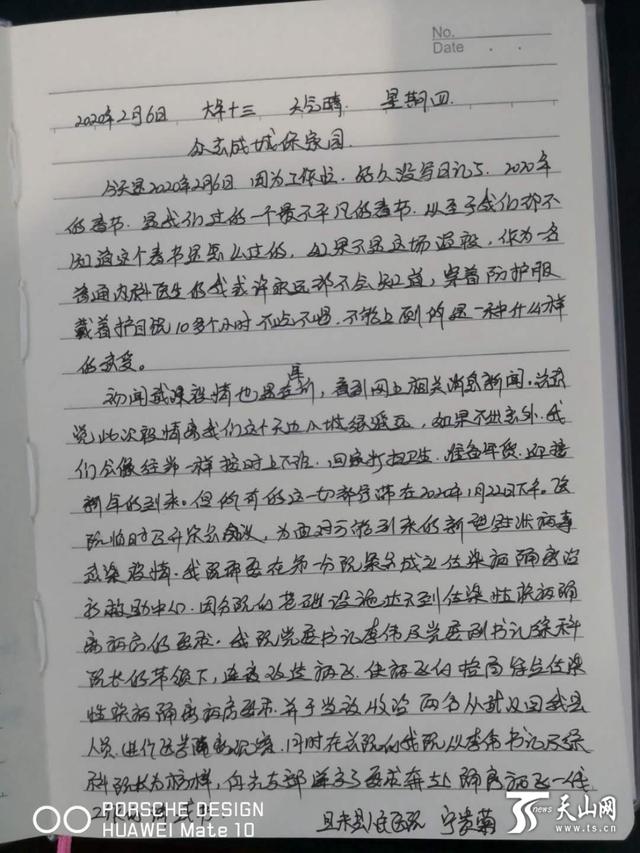 No.
Date . .
2020年2月6日 大年十三 天气晴. 星期四.
众志成城保家园.
今天是2020年2月6日 因为工作忙. 好久没写日记了. 2020年
的春节. 是我们过的一个最不平凡的春节. 以至于我们都不
知道这个春节是怎么过的, 如果不是这场疫, 作为一名
普通内科医生的我或许永远都不会知道, 穿着防护服
戴着护目镜10多个小时 不吃不喝. 不能上厕所是一种什么样
的感受。
初闻武汉疫情也是在年前, 看到网上相关消息新闻.
此次疫情离我们这个天边小城 如果不出意外. 我
们会像往常一样按时上下班. 回家打扫卫生. 准备年货. 迎接
新年的到来. 但所有的这一切都停滞在2020年1月22日下午.
院临时召开紧急会议, 为面对可能到来的新型冠状病毒
感染疫情. 我院需要在第一分院紧急成立传染病隔离
救助中心. 因分院的基础设施达不到传染性疾病隔
离病房的要求. 我院党委书记李伟及党委副书记
院长的带领下, 连夜改造病区. 使病区的格局符合传染
性疾病隔离病房要求. 并于当夜收治两名从武汉回我县
人员. 进行医学隔离观察. 同时在我院 李伟书记及
科院长为榜样, 向支部 奔赴隔离病区一线
且末县人民医院 宁贵菊
PORSCHE DESIGN
HUAWEI Mate 10
TS news 天山网
www.ts.cn